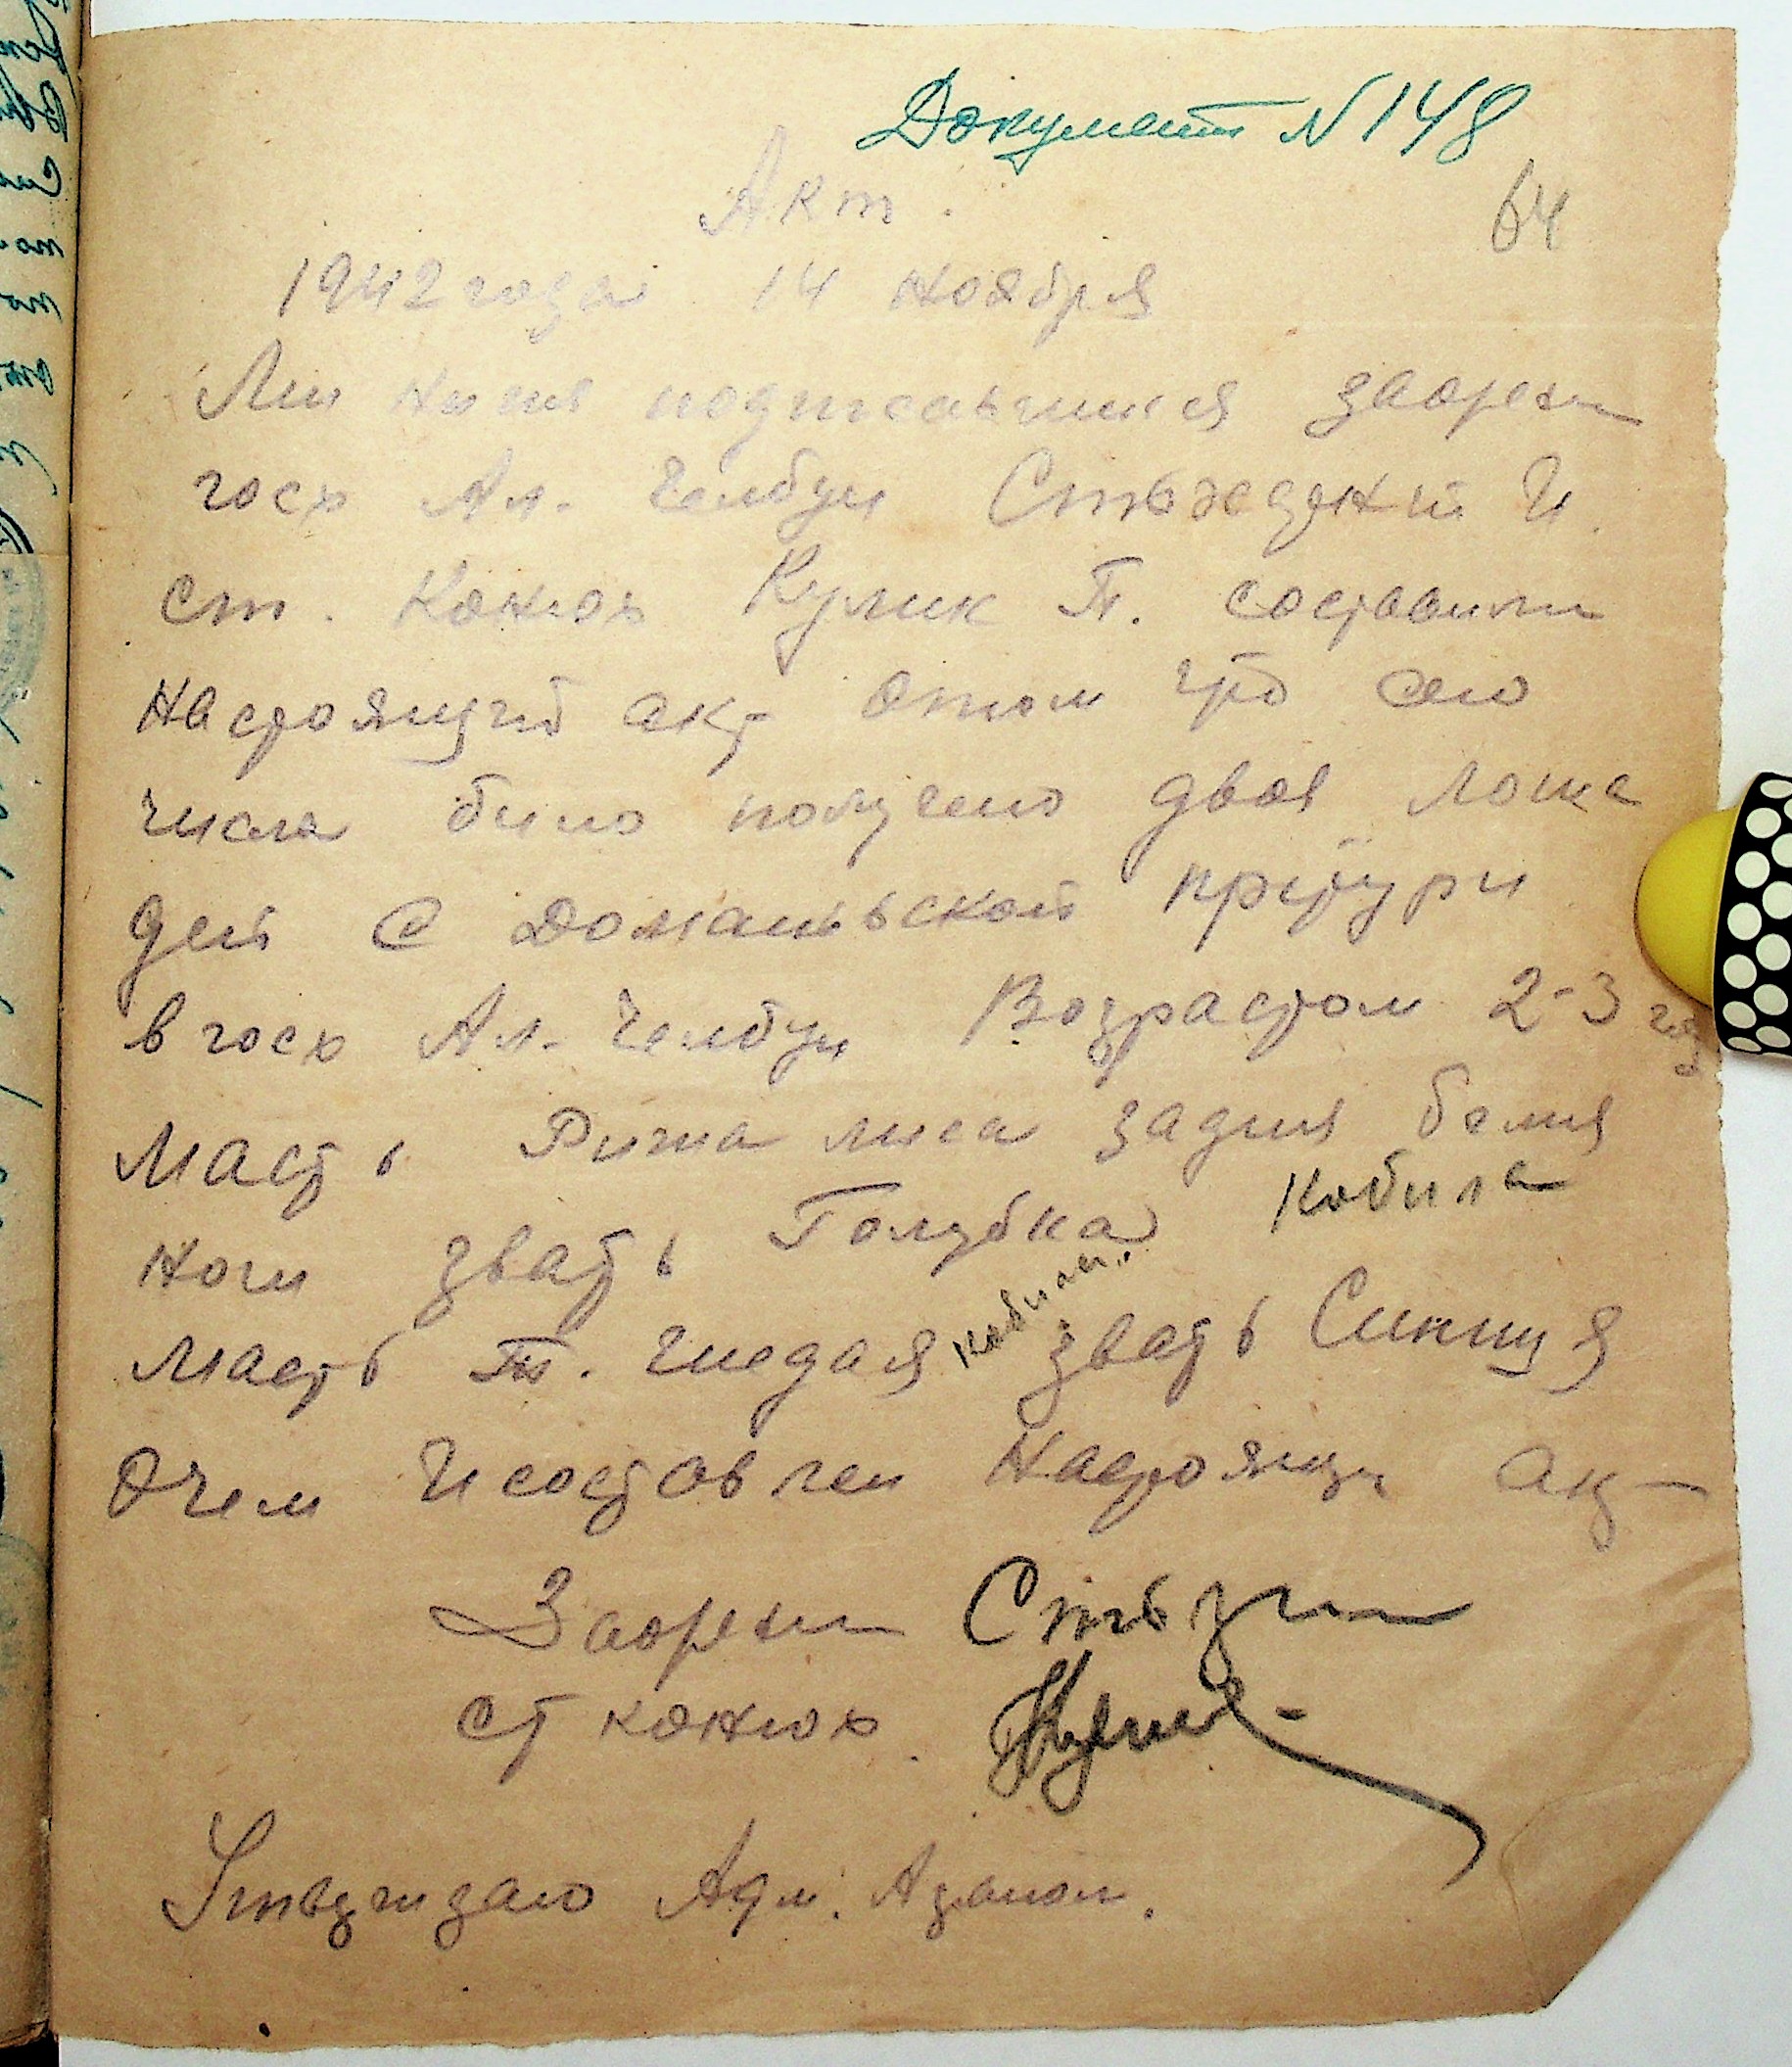 Документ N 148
64
Акт.
1942 года 14 ноября
Ми ниже подписавшиеся
госх Ал. Челбун И.
ст. конюх Кулик П. составили
настоящий акт отом что сего
числа било получено двое лоша
дей с Доманьвской притури
в госх Ал. Челбун Возрастом 2-3 год
Масть Рижа лиса задния белия
ноги звать Голубка Кобила
масть т. гнедая кобила звать Синиця
Очем и составлен настоящи акт
ст конюх Кулик
Утверждаю Адм. Агроном.